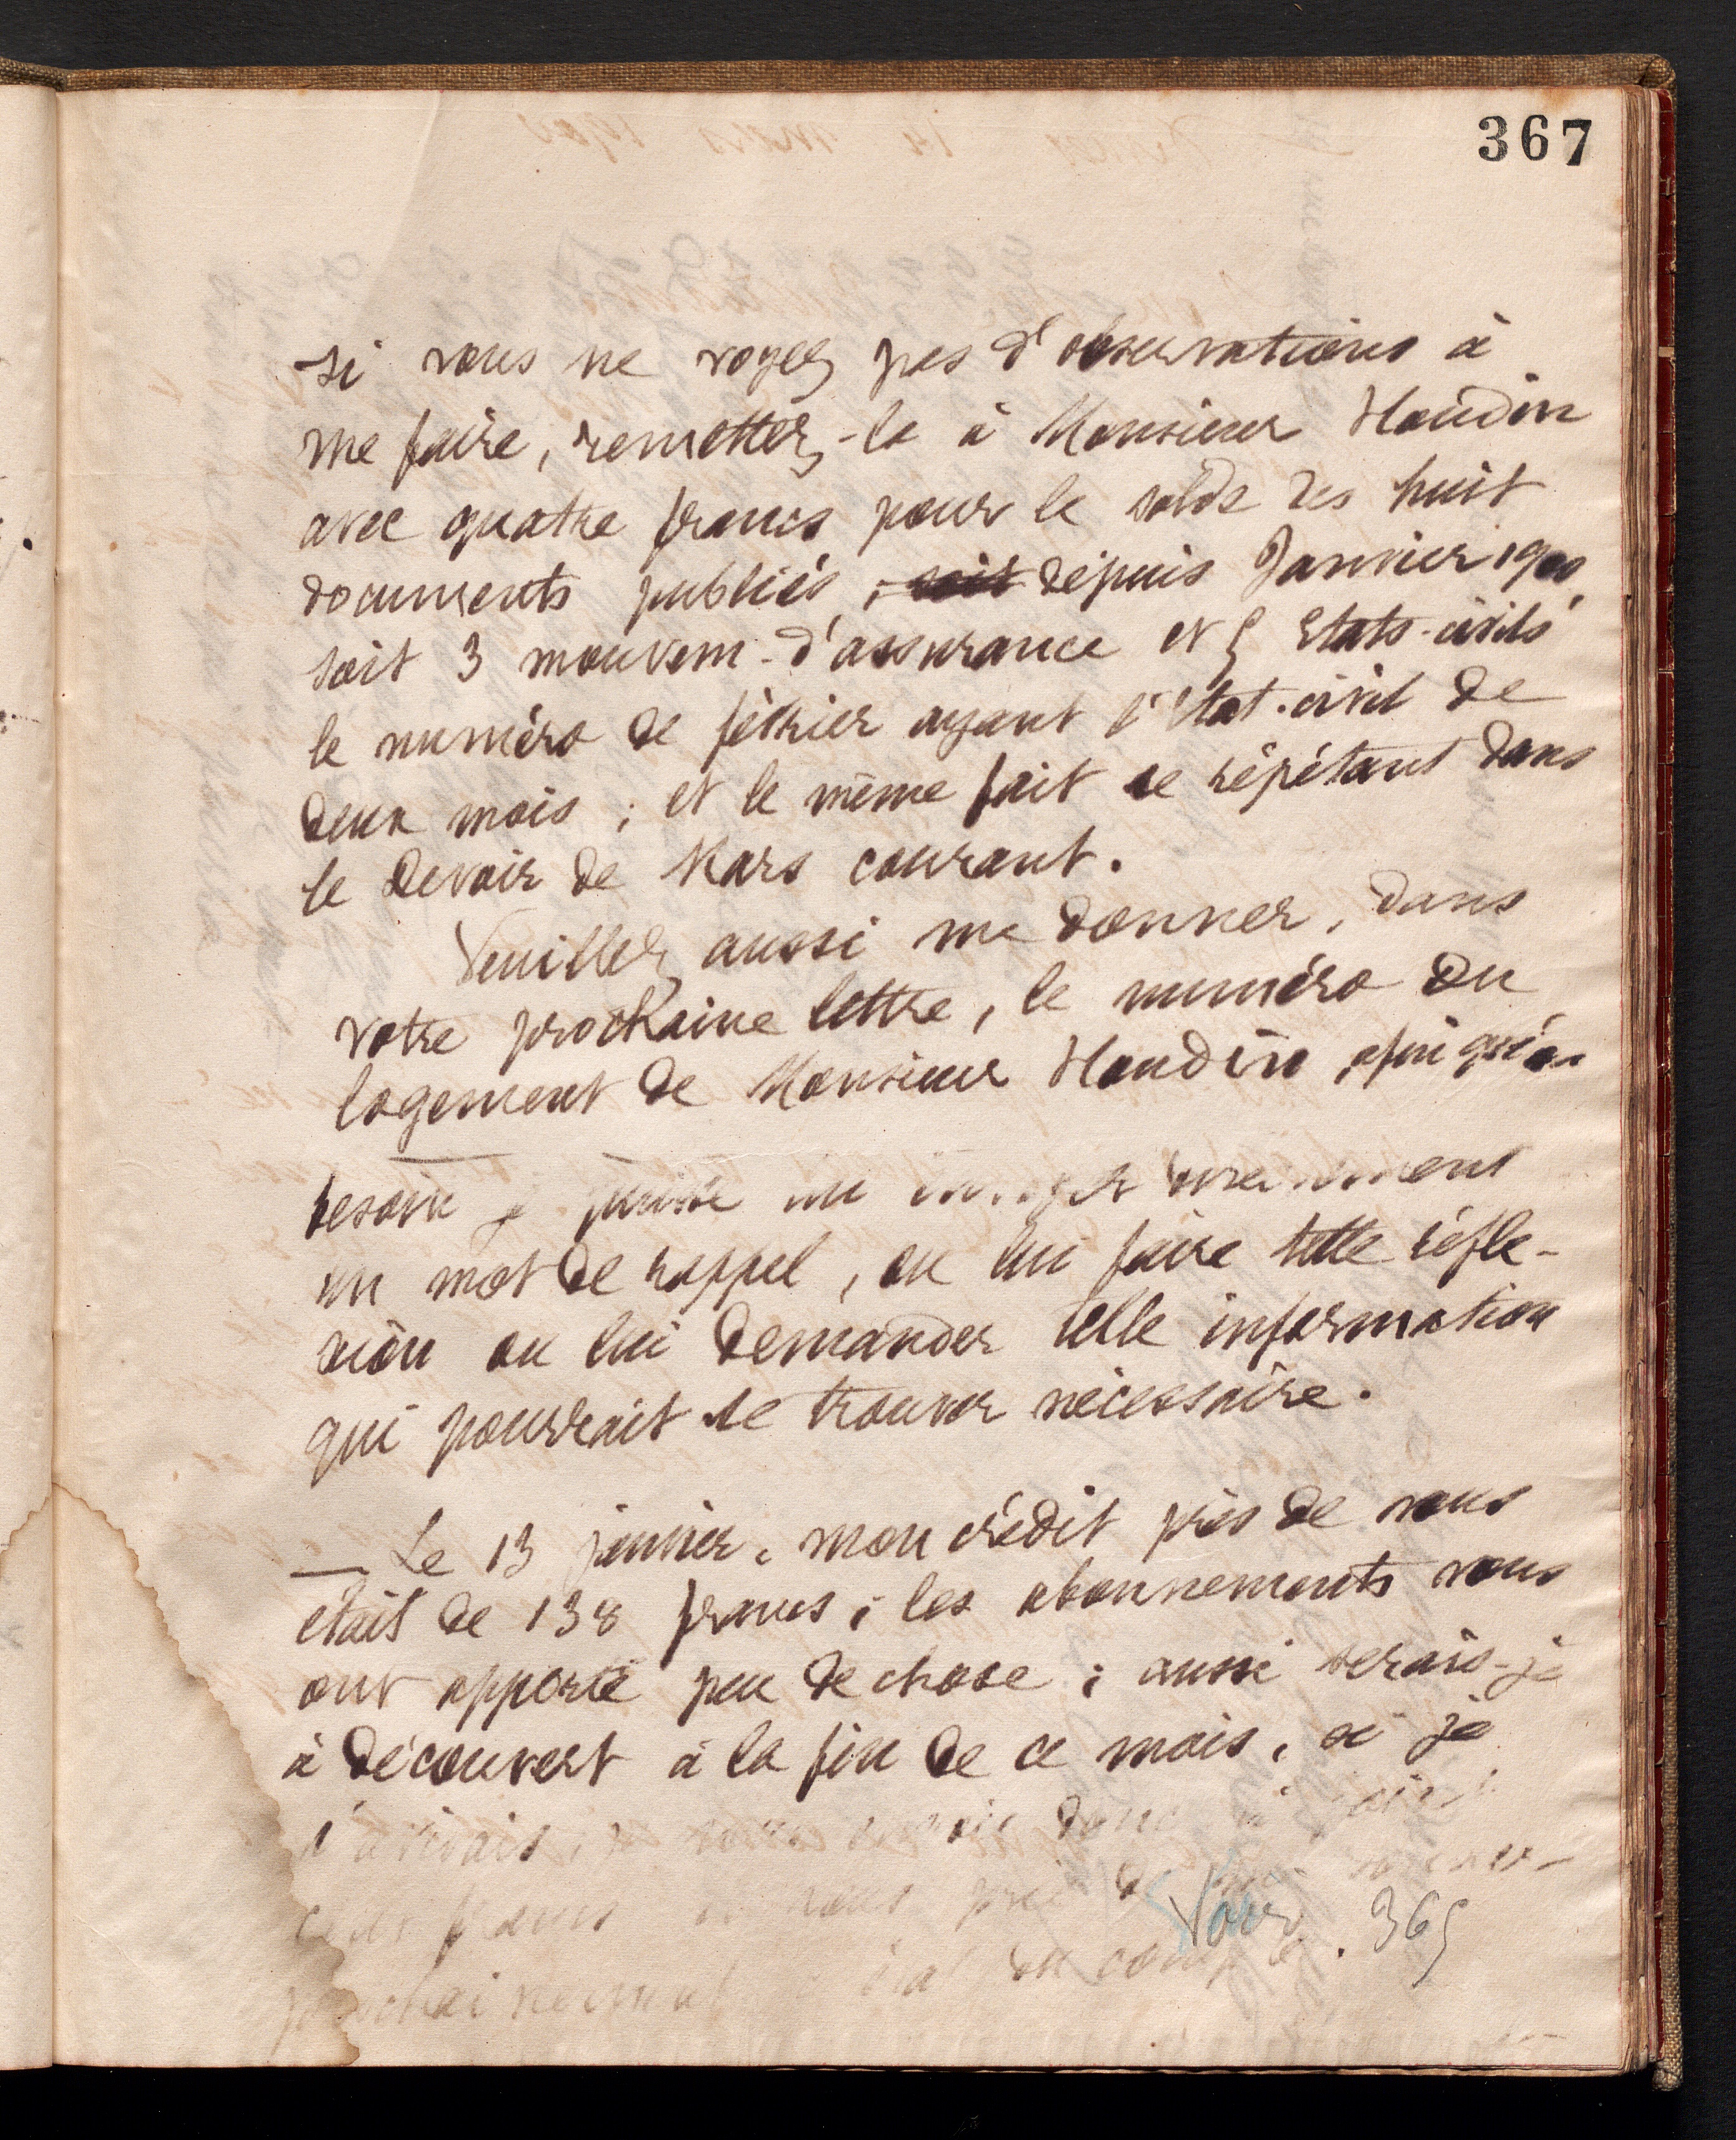 367
si vous ne voyez pas d'observations à
me faire, remettez-la à Monsieur Houdin
avec quatre francs pour le solde des huit
documents publiés, soit depuis Janvier 1900,
soit 3 mouvem. d'assurance et 5 Etats-civils
le numéro de février ayant l'Etat-civil de
deux mois ; et le même fait se répétant dans
le Devoir de Mars courant.
Veuillez aussi me donner, dans
votre prochaine lettre, le numéro du
logement de Monsieur Houdin, afin qu'au
besoin je puisse lui
un mot de rappel, ou lui faire telle réfle-
xion ou lui demander telle information
qui pourrait se trouver nécessaire.
— Le 13 janvier, mon crédit près de vous
était de 138 francs ; les abonnements vous
ont apporté peu de chose ; aussi serais-je
à découvert à la fin de ce mois, si je
n'avisais, je vous envoie donc
cents francs vous prie
prochainement état du compte.
Voir 365